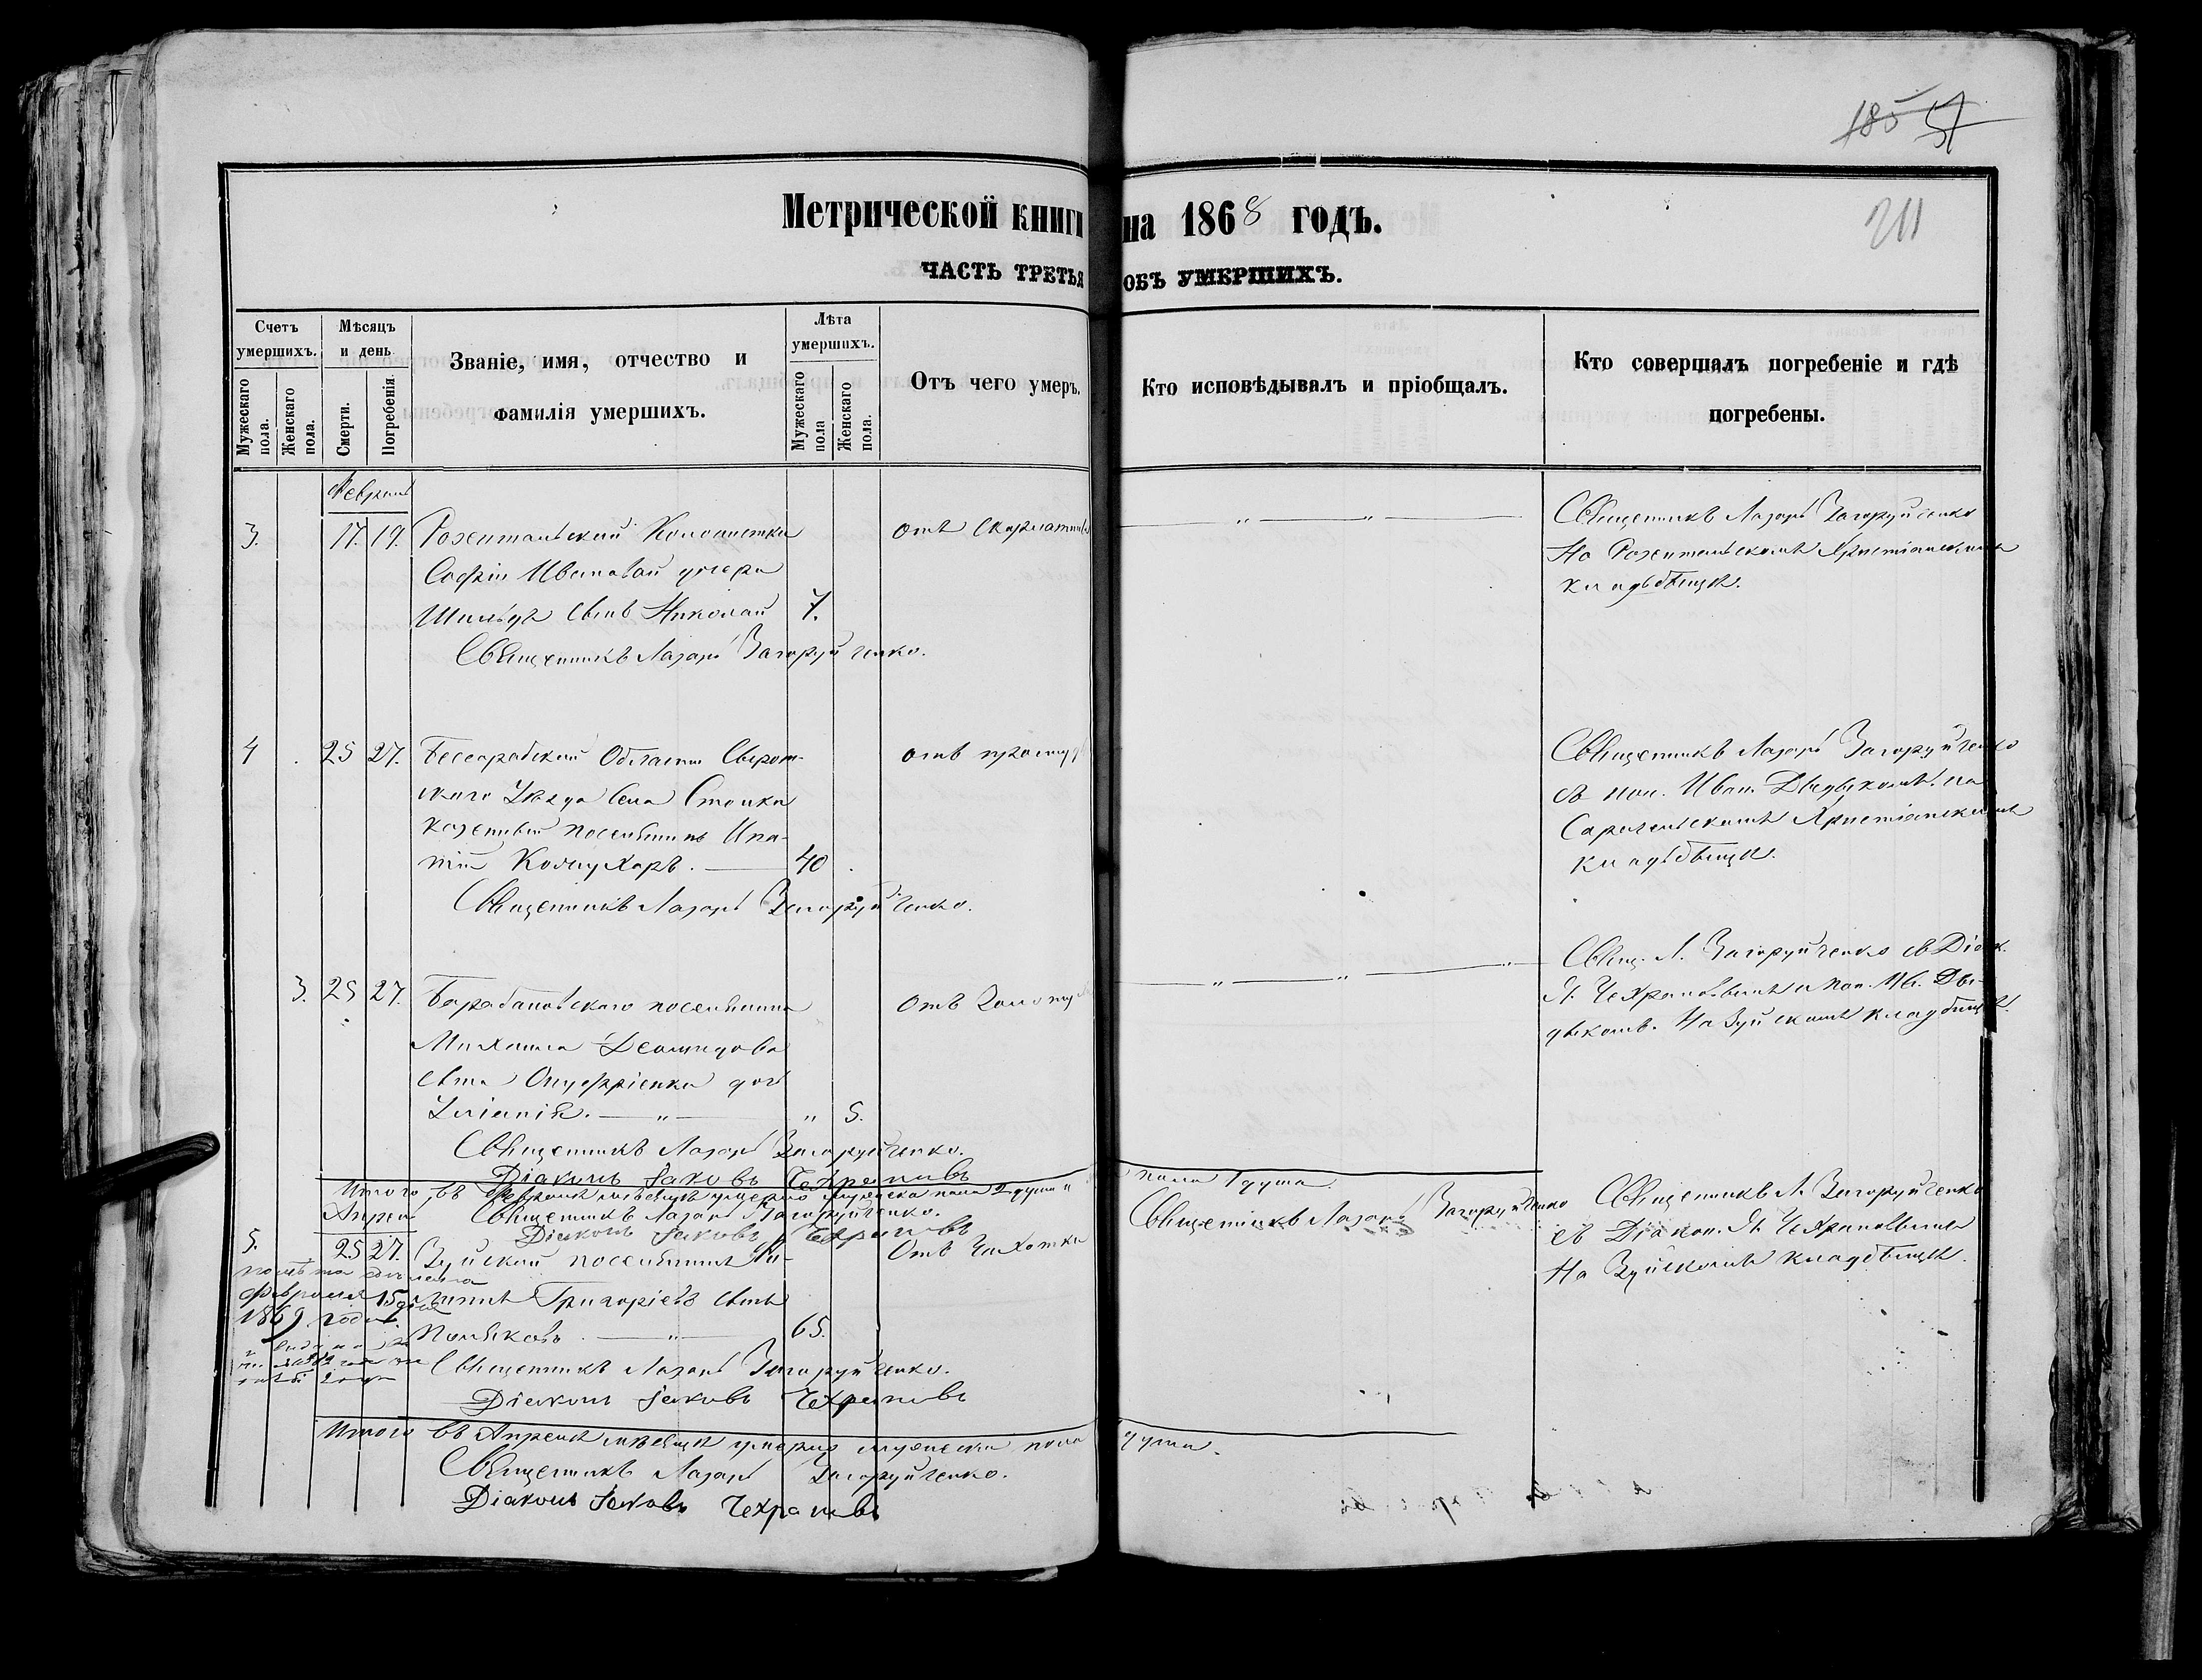 185 57
211
Метрической книги на 1868 годъ.
ЧАСТЬ ТРЕТЬЯ ОБЪ УМЕРШИХЪ.
Счетъ умершихъ.
Мужескаго пола.
Женскаго пола.
Мѣсяцъ и день
Смерти.
Погребенія.
Званіе, имя, отчество и фамилія умершихъ.
Лѣта умершихъ.
Мужескаго пола
Женскаго пола.
Отъ чего умеръ.
Кто исповѣдывалъ и пріобщалъ.
Кто совершалъ погребеніе и гдѣ погребены.
Февраль
3. 17. 19. Розентальской Колонистки
Софіи Ивановой дочери
Шильдъ сынъ Николай 7.
отъ скарлатины
Священникъ Лазарь Загоруйченко
На Розентальскомъ Христіанскомъ
кладбищѣ.
Священникъ Лазарь Загоруйченко.
4 25 27. Бессарабской Области
уѣзда села
поселянинъ Ипа-
тій 40
отъ простуд
Священникъ Лазарь Загоруйченко
съ пон. Иван. Дьдыкомъ. на
Христіанскомъ
кладбищѣ.
Священникъ Лазарь Загоруйченко.
3. 25 27. Барабановскаго поселянина
Михаила
сына Онуфріенка дочь
Уліанія. " 5.
отъ Золоту
Свящ. Л. Загоруйченко съ Діак.
Я. Чехрановымъ и пон. Ив. Ды-
дыкомъ. На Зуйскомъ кладбищѣ.
Священникъ Лазарь Загоруйченко.
Діаконъ Іаковъ Чехрановъ
Итого въ Февралѣ мѣсяцѣ умерло мужеска пола 2 души пола 1 душа.
Священникъ Лазарь Загоруйченко.
Діаконъ Іаковъ Чехрановъ
Апрель
5. 25 27. Зуйской поселянинъ
Григоріевъ сынъ
Поляковъ 65.
отъ Чахотки
Священникъ Лазарь Загоруйченко
Священникъ Л. Загоруйченко
съ Діакон. Я. Чехрановымъ
На Зуйскомъ кладбищѣ.
Февраля 15 дня
1869 года
Священникъ Лазарь Загоруйченко.
Діаконъ Іаковъ Чехрановъ
Итого въ Апрелѣ мѣсяцѣ умерло мужеска пола душа.
Священникъ Лазарь Загоруйченко.
Діаконъ Іаковъ Чехрановъ